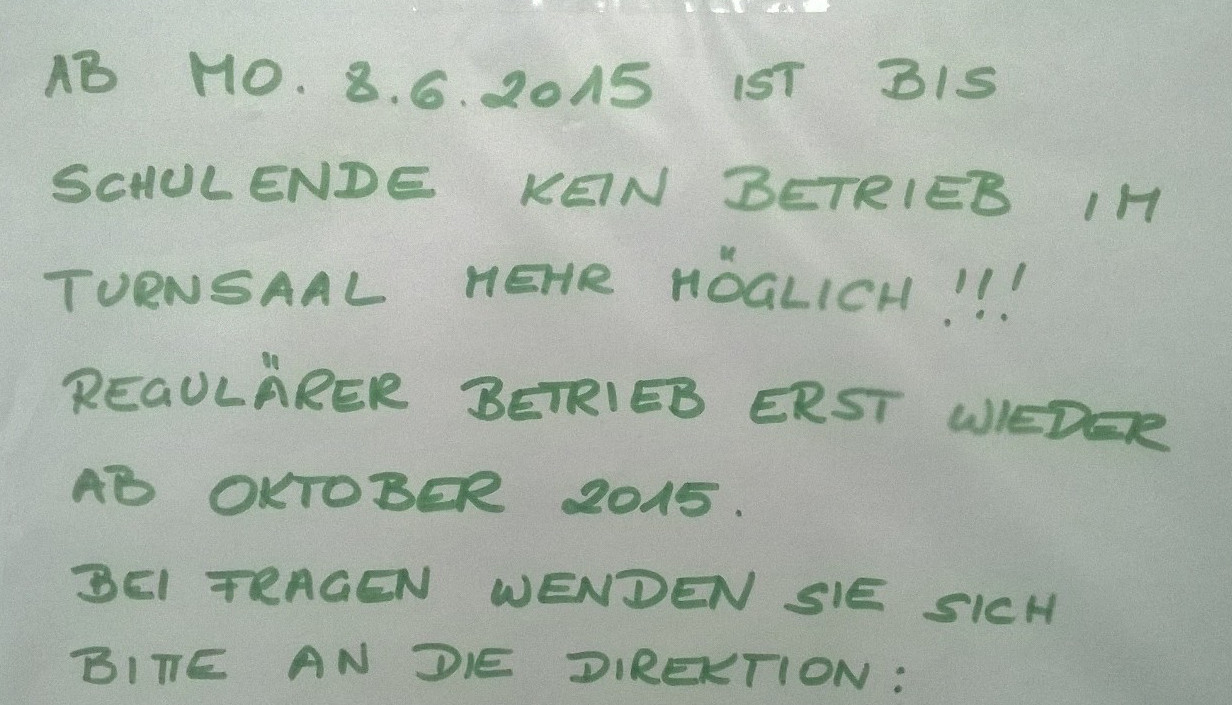 AB MO. 8.6.2015 IST BIS
SCHULENDE KEIN BETRIEB IM
TURNSAAL MEHR MÖGLICH!!!
REGULÄRER BETRIEB ERST WIEDER
AB OKTOBER 2015.
BEI FRAGEN WENDEN SIE SICH
BITTE AN DIE DIREKTION: